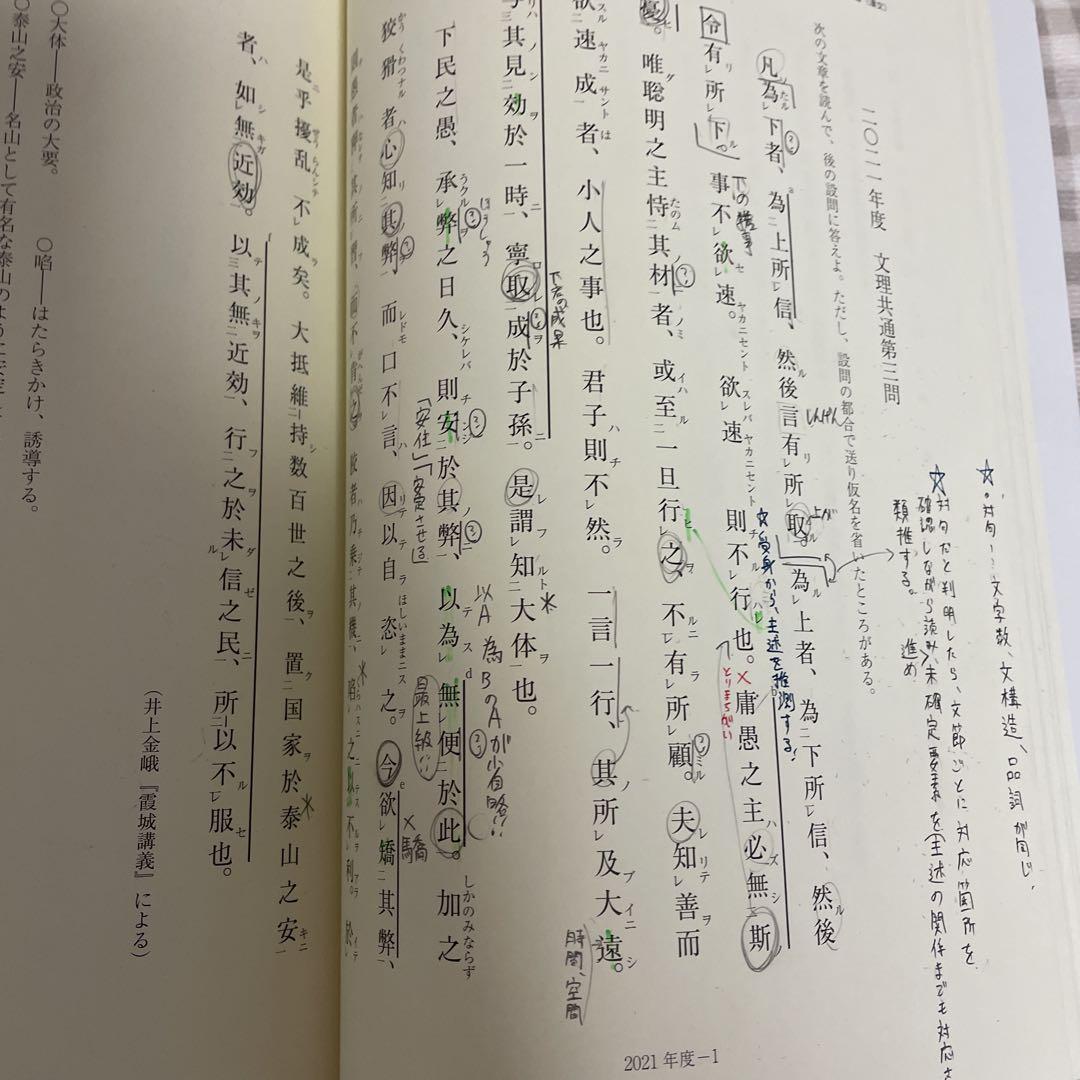 二〇二一年度　文理共通第三問
次の文章を読んで、後の設問に答えよ。ただし、設問の都合で送り仮名を省いたところがある。
凡為下者、為上所信、然後言有所取。為上者、為下所信、然後
令有所下。事不欲速。欲速則不行也。庸愚之主必無斯
憂。唯聡明之主恃其材者、或至一旦行之、不有所顧。夫知善而
欲速成者、小人之事也。君子則不然。一言一行、其所及大遠。
与其見効於一時、寧取成於子孫。是謂知大体也。
下民之愚、承弊之日久、則安於其弊、以為無便於此。加之
狡猾者心知其弊、而口不言、因以自恣之。今欲矯其弊、
狡者乃乗其機、
是乎擾乱不成矣。大抵維持数百世之後、置国家於泰山之安
者、如無近効。以其無近効、行之於未信之民、所以不服也。
（井上金峨『霞城講義』による）
〇大体――政治の大要。　〇啗――はたらきかけ、誘導する。
〇泰山之安――名山として有名な泰山のように安定
☆。対句！文字数、文構造、品詞が同じ、
☆対句だと判明したら、文節ごとに対応箇所を
確認しながら読み進め
未確定要素を（主述の関係までも対応
類推する。
しんげん
上が
下の
受身から、主述を推測する！
とりまちがい
下者の成果
時間、空間
「安住」「安定させる」
以A為BのAが省略!!
最上級!!
×驕
2021年度−1